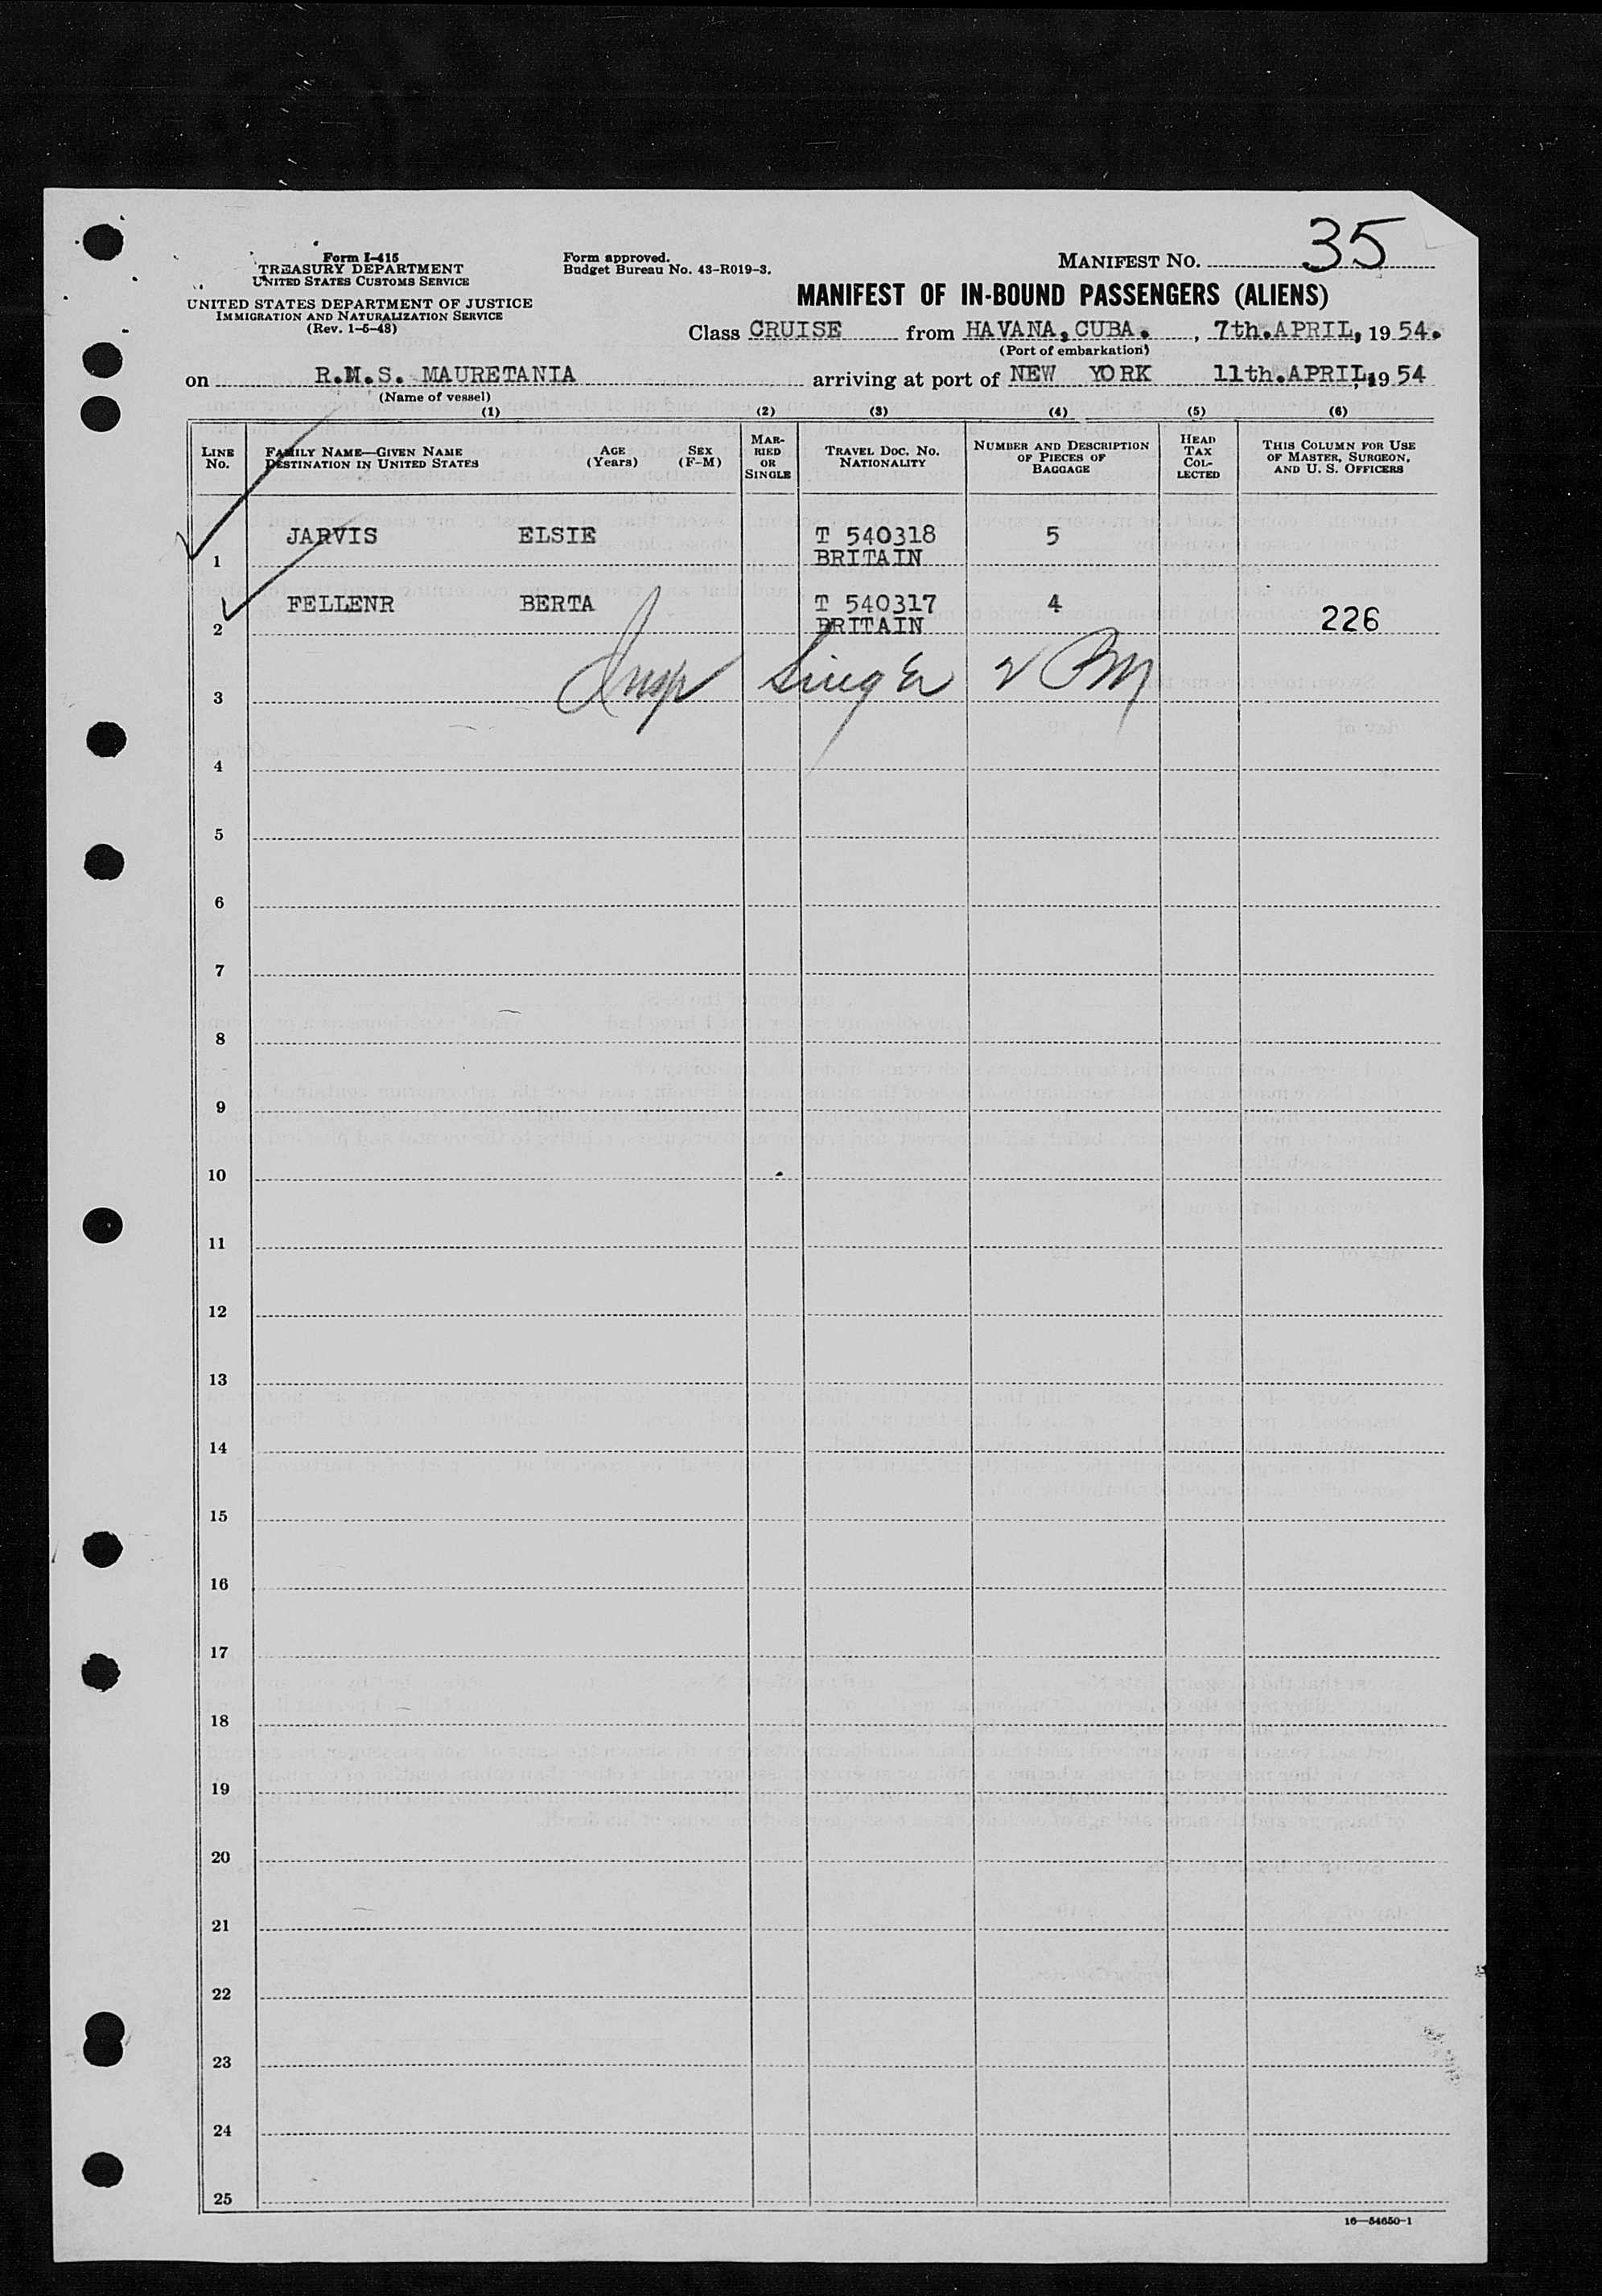 35
Form I-415
TREASURY DEPARTMENT
UNITED STATES CUSTOMS SERVICE
UNITED STATES DEPARTMENT OF JUSTICE
IMMIGRATION AND NATURALIZATION SERVICE
(Rev. 1-5-48)
Form approved.
Budget Bureau No. 43-R019-3.
MANIFEST NO.
MANIFEST OF IN-BOUND PASSENGERS (ALIENS)
Class CRUISE from HAVANA, CUBA. , 7th. APRIL, 1954.
(Port of embarkation)
on R.M.S. MAURETANIA arriving at port of NEW YORK 11th. APRIL, 1954
(Name of vessel)
(1) (2) (3) (4) (5) (6)
LINE NO.
FAMILY NAME—GIVEN NAME
DESTINATION IN UNITED STATES
AGE (Years)
SEX (F-M)
MARRIED OR SINGLE
TRAVEL DOC. NO.
NATIONALITY
NUMBER AND DESCRIPTION
OF PIECES OF
BAGGAGE
HEAD
TAX
COL-
LECTED
THIS COLUMN FOR USE
OF MASTER, SURGEON,
AND U. S. OFFICERS
JARVIS ELSIE T 540318 5
1 BRITAIN
FELLENR BERTA T 540317 4
2 BRITAIN 226
Insp Singer
3
4
5
6
7
8
9
10
11
12
13
14
15
16
17
18
19
20
21
22
23
24
25
16—54650-1